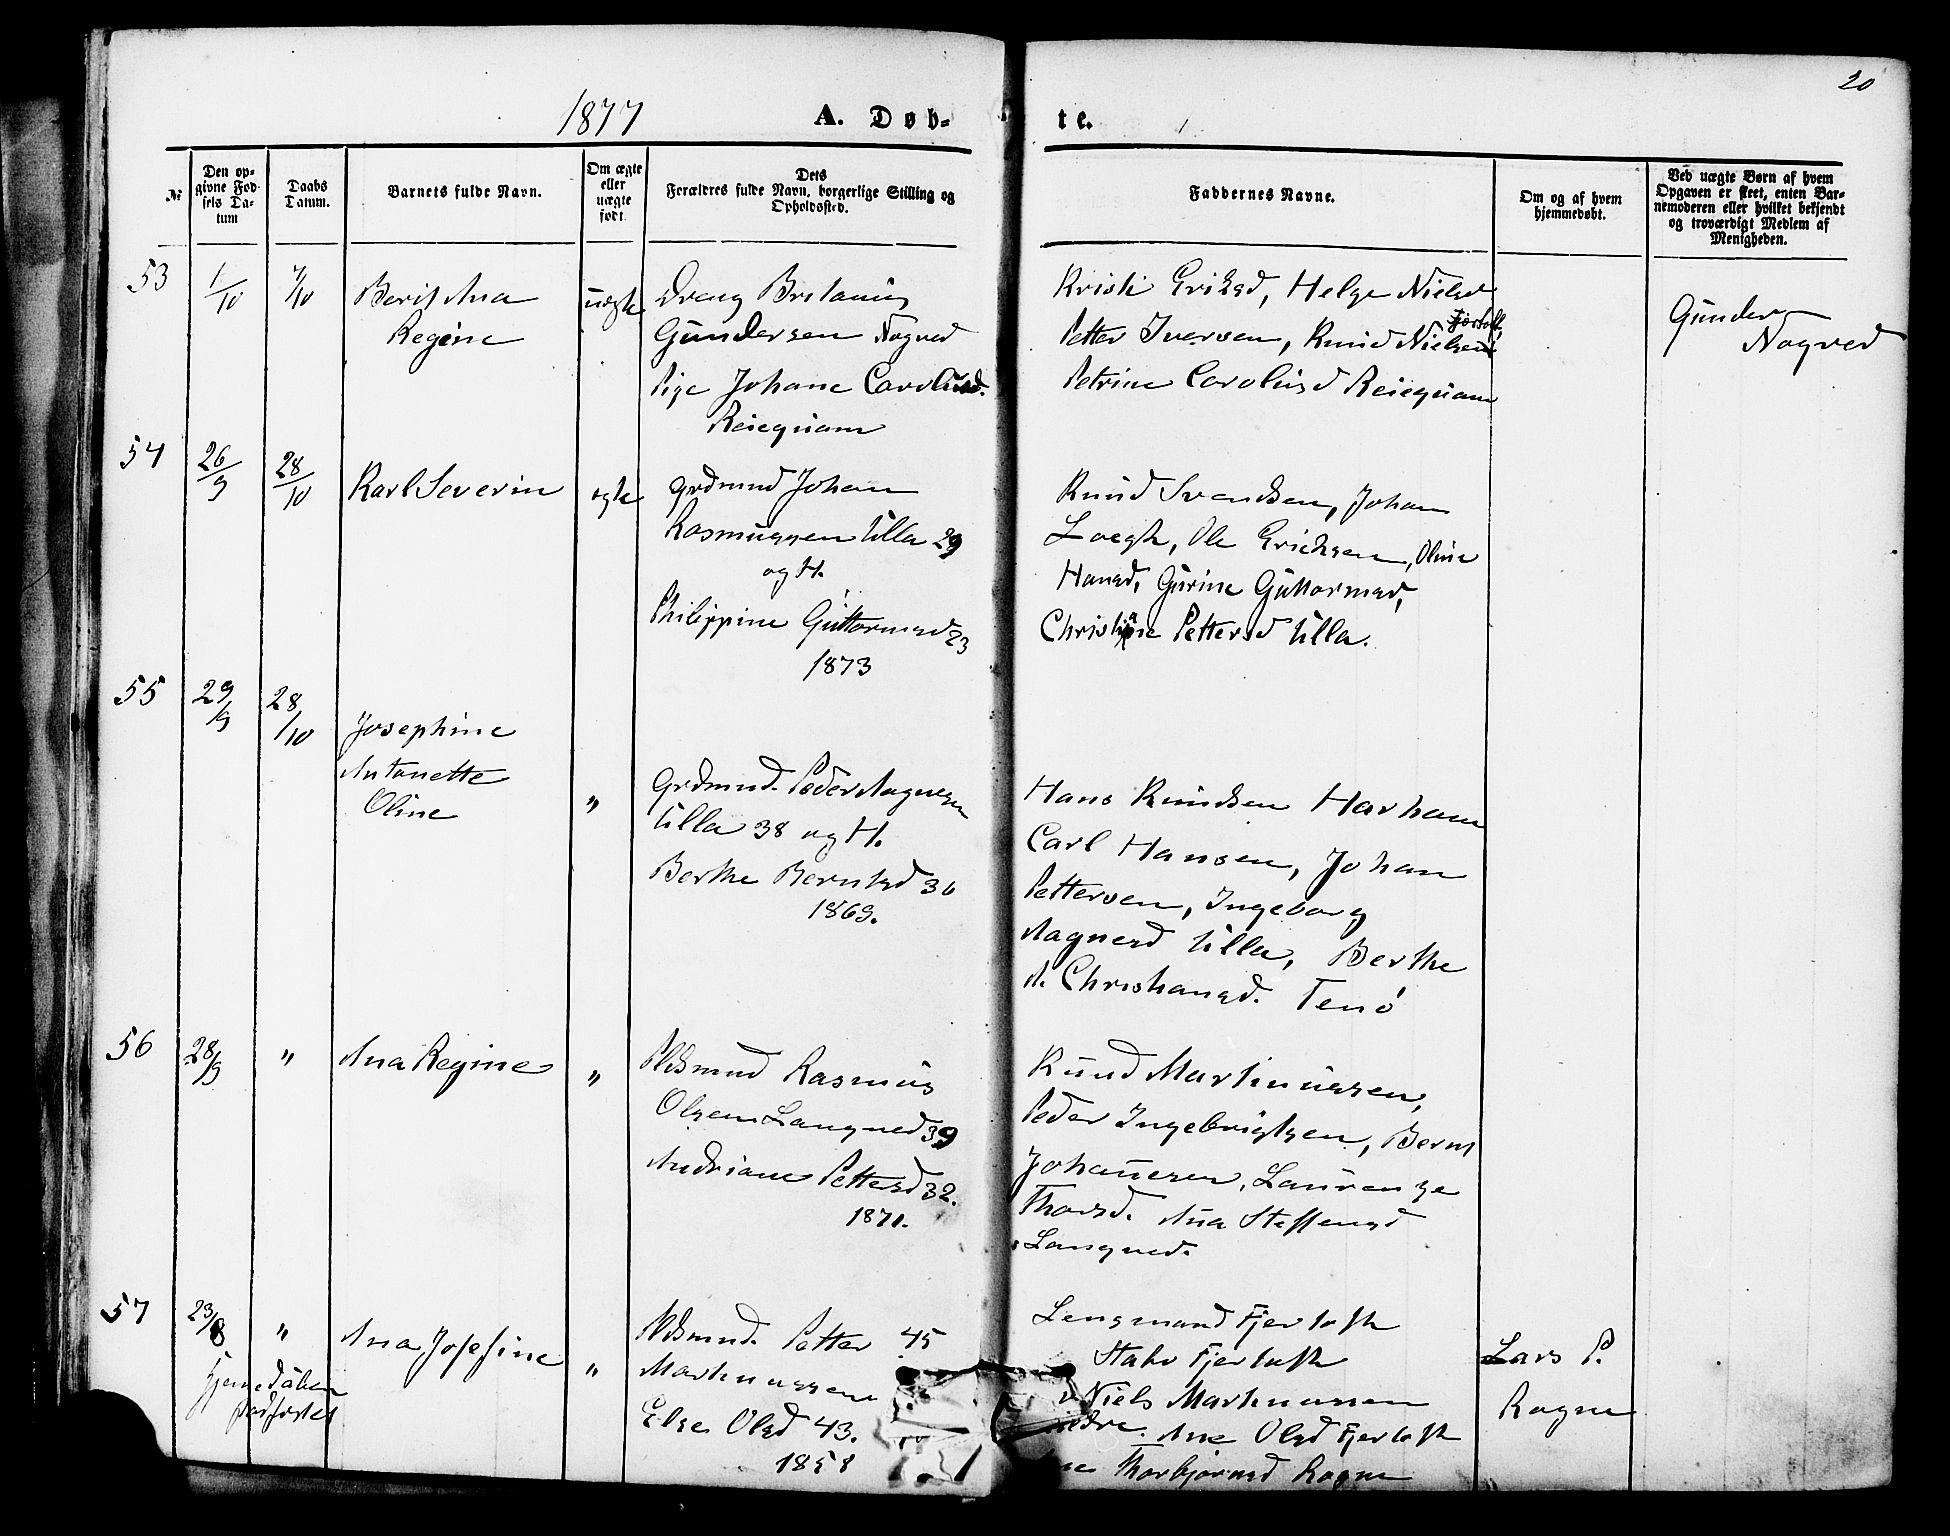 20
1877
A. Døb-
te.
№
Den op-
givne Fød-
sels Da-
tum
Daabs
Datum.
Barnets fulde Navn.
Om ægte
eller
uægte
født.
Dets
Forældres fulde Navn, borgerlige Stilling og
Opholdssted.
Faddernes Navne.
Om og af hvem
hjemmedøbt.
Ved uægte Børn af hvem
Opgaven er skeet, enten Bar-
nemoderen eller hvilket bekjendt
og troværdigt Medlem af
Menigheden.
53
1/10
7/10
Berit Ana
Regine
uægte
Dreng
Gundersen Nogved
Pige Johane Carolusd.
Reiequam
Kristi Eriksd, Helge Nielsd
Petter Iversen, Knud Nielsen Fjørtoft
Petrine Carolusd Reiequam
Gunder
Nogved
54
26/9
28/10
Karl Severin
egte
Grdmnd Johan
Rasmussen Ulla 29
og H.
Philippine Guttormsd 23
1873
Knud Svendsen, Johan
Loegh, Ole Ericksen, Oline
Hansd, Gurine Guttormsd,
Christine Pettersd Ulla.
55
29/9
28/10
Josephine
Antonette
Oline
"
Grdmnd. Peder Aagnesen
Ulla 38 og H.
Berthe Berntsd 36
1869.
Hans Knudsen Harham
Carl Hansen, Johan
Pettersen, Ingeborg
Aagnesd Ulla, Berthe
A. Christiansd. Tenø
56
28/9
"
Ana Regine
"
Pldsmnd Rasmus
Olsen Longved 39
Andriane Pettersd 32.
1871.
Knud Martinussen,
Peder Ingebrigtsen, Bernt
Johannesen, Laurense
Thorsd. Ana Steffensd
Longved.
57
23/8
"
hjemedøben
stadfestet
Ana Josefine
"
Pldsmnd. Petter 45
Martinussen
Else Olsd 43.
1858
Lensmand Fjertoft
Fjertoft
Niels Martinussen
Ane Olsd Fjertoft
Thorbjørnsd Rogne
Lars P.
Rogne